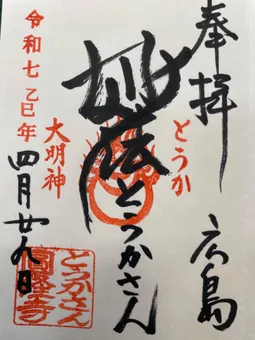 奉拝
とうか
広島
妙法
とうかさん
大明神
令和七乙巳年
四月廿九日
とうかさん
圓隆寺